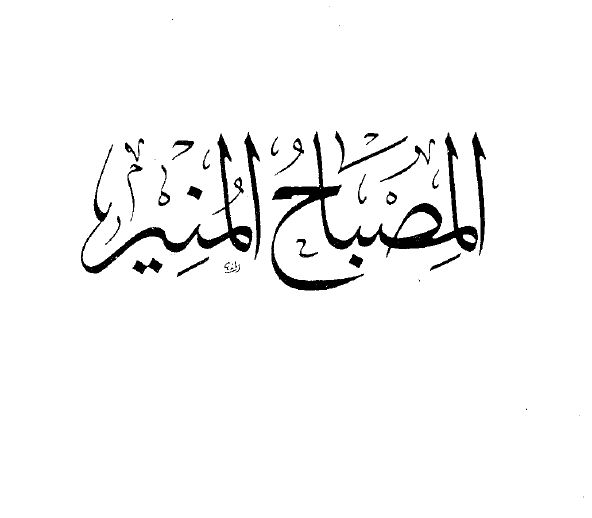 المِصْبَاحُ المُنِير